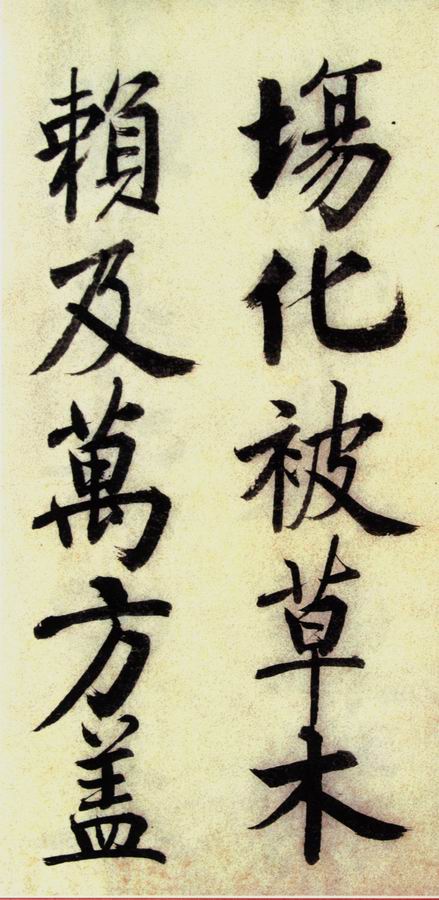 塲化被草木
賴及萬方盖